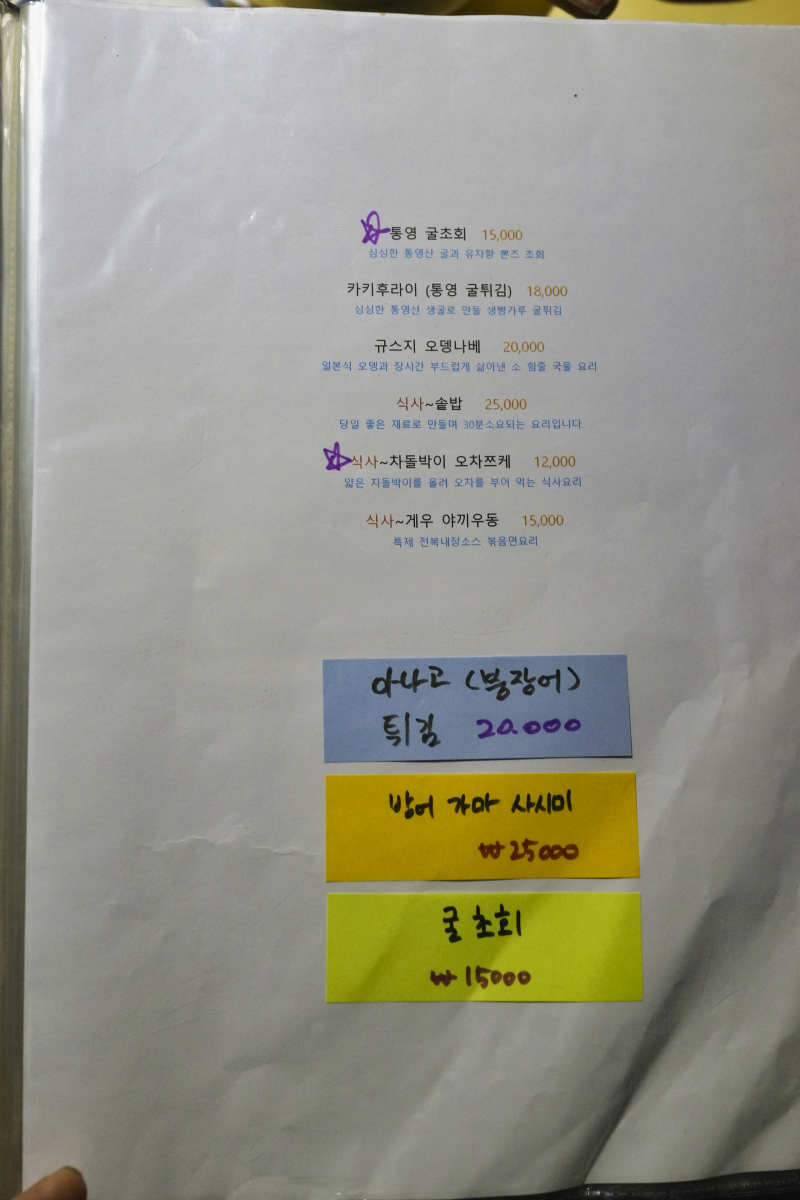 통영 굴초회 15,000
싱싱한 통영산 굴과 유자향 뽄즈 초회
카키후라이 (통영 굴튀김) 18,000
싱싱한 통영산 생굴로 만들 생빵가루 굴튀김
규스지 오뎅나베 20,000
일본식 오뎅과 장시간 부드럽게 삶아낸 소 힘줄 국물 요리
식사~솥밥 25,000
당일 좋은 재료로 만들며 30분소요되는 요리입니다.
식사~차돌박이 오차쯔케 12,000
얇은 차돌박이를 올려 오차를 부어 먹는 식사요리
식사~게우 야끼우동 15,000
특제 전복내장소스 볶음면요리
아나고 (붕장어)
튀김 20.000
방어 가마 사시미
₩25000
굴초회
₩15000